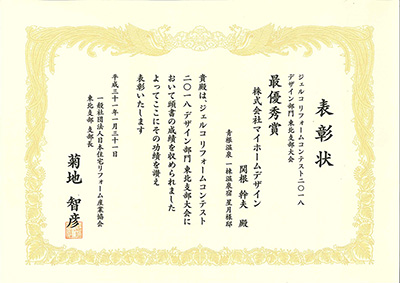 表彰状
ジェルコ リフォームコンテスト二〇一八
デザイン部門 東北支部大会
最優秀賞
株式会社マイホームデザイン
関根 幹夫 殿
青根温泉 一棟温泉宿 星月様邸
貴殿は、ジェルコ リフォームコンテスト
二〇一八 デザイン部門 東北支部大会に
おいて頭書の成績を収められました
よってここにその功績を讃え
表彰いたします
平成三十一年一月三十一日
一般社団法人日本住宅リフォーム産業協会
東北支部 支部長
菊地 智彦